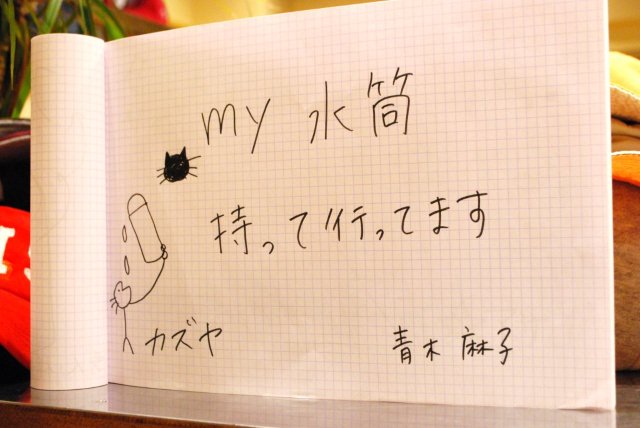 my 水筒
持って行ってます
カズヤ
青木 麻子